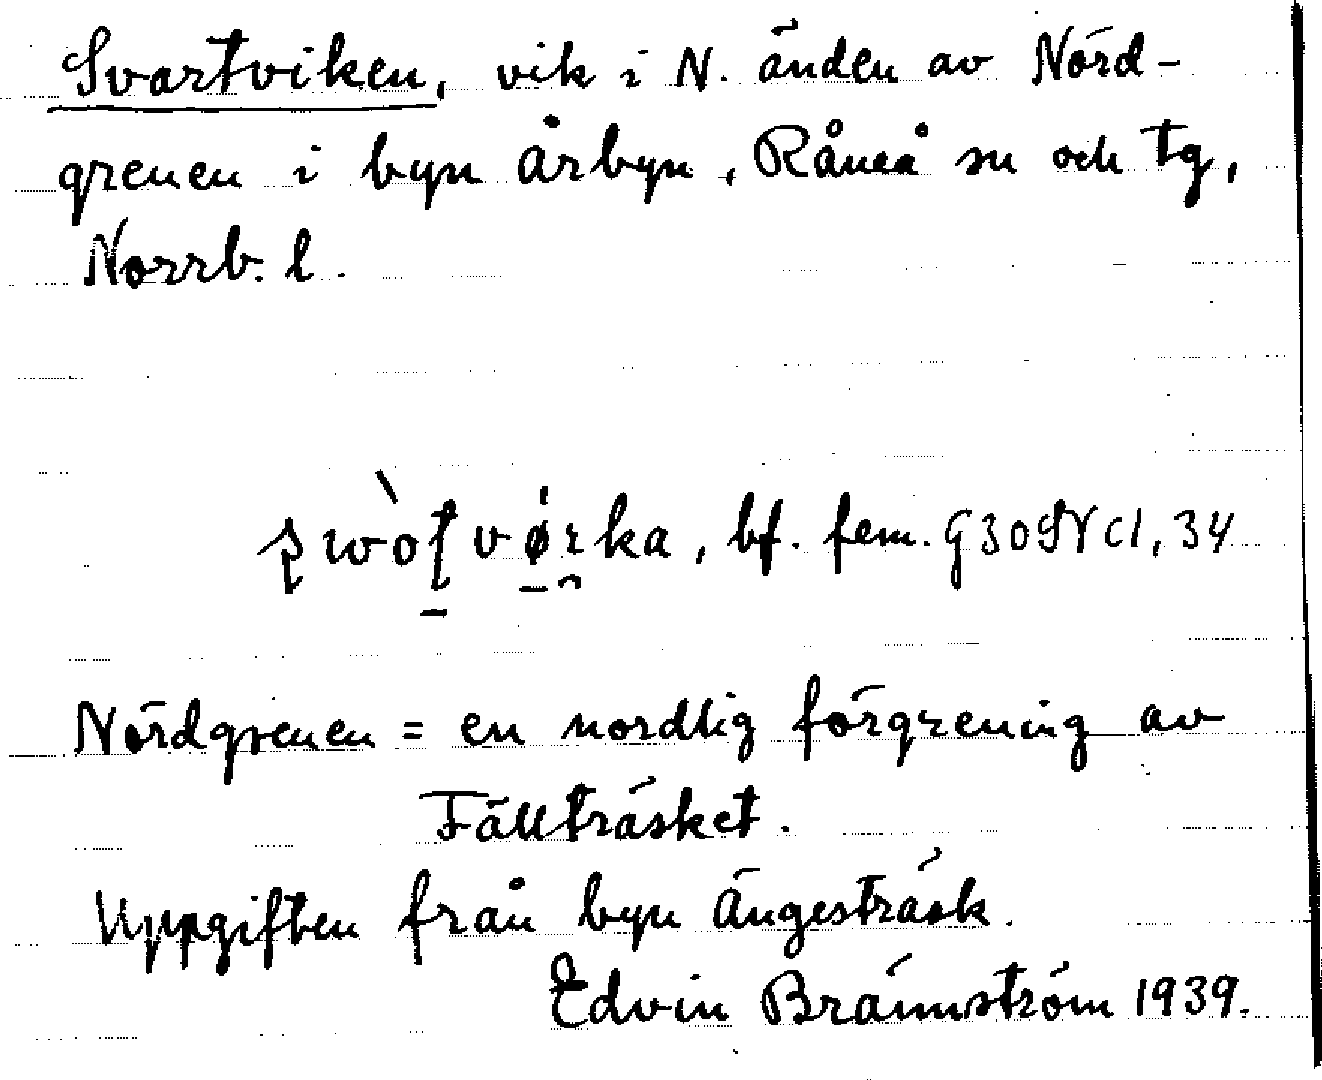 Svartviken, vik i N. änden av Nörd-
grenen i byn Årbyn, Råneå sn och tg,
Norrb. l.
bf. fem.
Nördgrenen = en nordlig förgrening av
Fällträsket.
Uppgiften från byn Ängesträsk.
Edvin Brännström 1939.